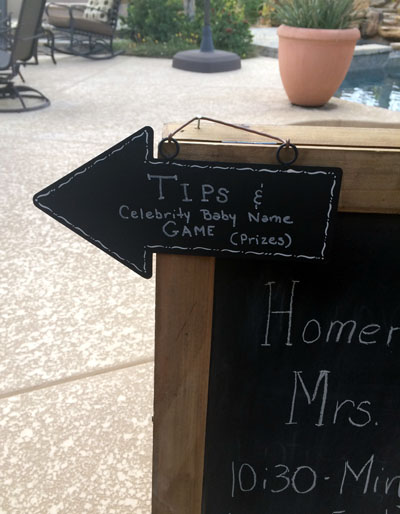 TIPS &
Celebrity Baby Name
GAME (Prizes)
Homer
Mrs.
10:30-Min